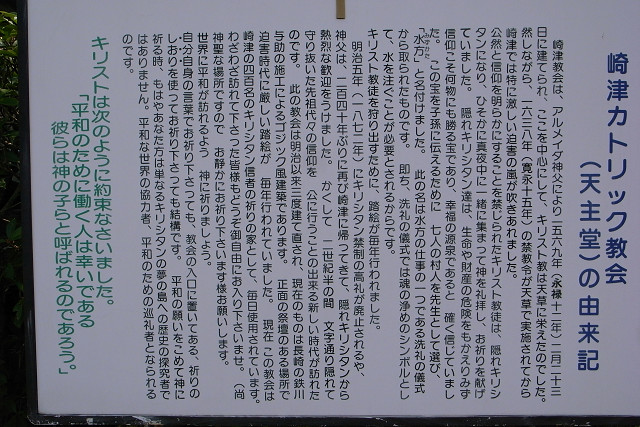 崎津カトリック教会
(天主堂)の由来記
崎津教会は、アルメイダ神父により一五六九年(永禄十二年)二月二十三
日に建てられ、ここを中心にして、キリスト教は天草に栄えたのでした。
然しながら、一六三八年(寛永十五年)の禁教令が天草で実施されてから
崎津では特に激しい迫害の嵐が吹きあれました。
公然と信仰を明らかにすることを禁じられたキリスト教徒は、隠れキリシ
タンになり、ひそかに真夜中に一緒に集まって神を礼拝し、お祈りを献げ
ていました。 隠れキリシタン達は、生命や財産の危険をもかえりみず
信仰こそ何物にも勝る宝であり、幸福の源泉であると 確く信じていまし
た。 この宝を子孫に伝えるために 七人の村人を先生として選び、
「水方」と名付けました。 此の名は水方の仕事の一つである洗礼の儀式
から取られたものです。 即ち、洗礼の儀式では魂の浄めのシンボルとし
て、水を注ぐことが必要とされるからです。
明治五年(一八七二年)にキリシタン禁制の高札が廃止されるや、
キリスト教徒を狩り出すために、踏絵が毎年行われました。
神父は、二百四十年ぶりに再び崎津に帰ってきて、隠れキリシタンから
熱烈な歓迎をうけました。 かくして 二世紀半の間 文字通り隠れて
守り抜いた先祖代々の信仰を 公に行うことの出来る新しい時代が訪れた
のです。 此の教会は明治以来三度建て直され、現在のものは長崎の鉄川
与助の施工によるゴシック風建築であります。 正面の祭壇のある場所で
迫害時代に厳しい踏絵が 毎年行われていました。 現在 この教会は
崎津の四百名のキリシタン信者の祈りの家として、毎日使用されています。
わざわざ訪れて下さった皆様もどうぞ御自由にお入り下さいませ。(尚
神聖な場所ですので お静かにお祈り下さいます様お願いします。
世界に平和が訪れるよう 神に祈りましょう。
自分自身の言葉でお祈り下さっても、教会の入口に置いてある、祈りの
しおりを使ってお祈り下さっても結構です。 平和の願いをこめて神に
祈る時、もはやあなた方は単なるキリシタンの夢の島への歴史の探究者で
はありません。平和な世界の協力者、平和のための巡礼者となられる
のです。
キリストは次のように約束なさいました。
「平和のために働く人は幸いである
彼らは神の子らと呼ばれるのであろう。」